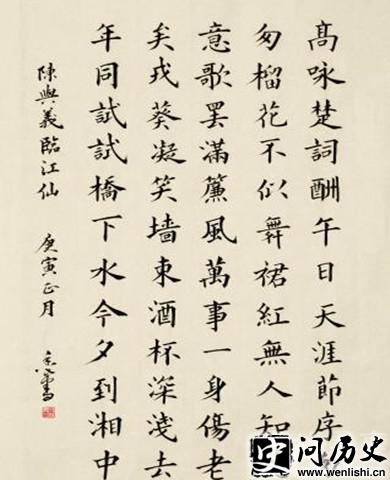 髙咏楚詞酬午日天涯節序
匆榴花不似舞裙紅無人知
意歌罷滿簾風萬事一身傷老
矣戎葵凝笑墻東酒杯深淺去
年同試試橋下水今夕到湘中
陳與義臨江仙 庚寅正月
问历史
www.wenlishi.cn